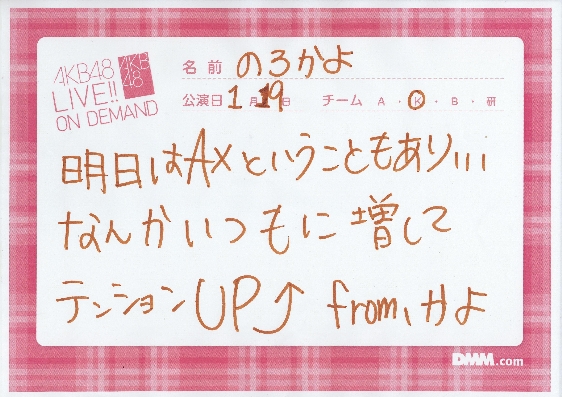 AKB48
LIVE!!
ON DEMAND
AKB
48
名前 のろかよ
公演日 1月19日 チーム A・K・B・研
明日はAXということもあり、、、
なんかいつもに増して
テンションUP⤴ from、かよ
DMM.com